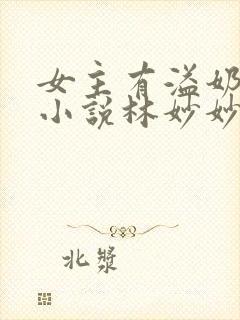 女主有溢奶
小说林妙妙
北浆